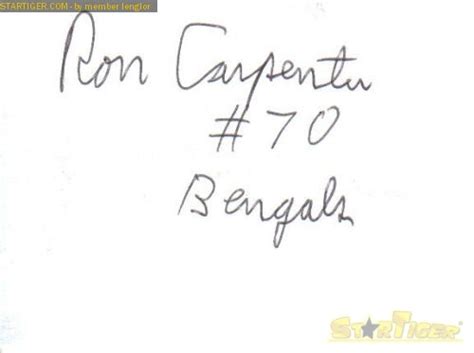 STARTIGER.COM - by member lenglor
Ron Carpenter
#70
Bengals
STARTIGER